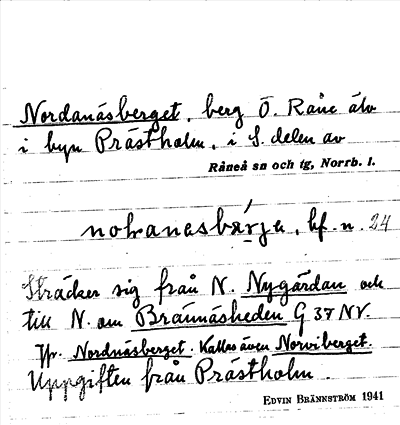 Nordanäsberget, berg Ö. Råne älv
i byn Prästholm, i S. delen av
Råneå sn och tg, Norrb. l.
bf. n. 24
Sträcker sig från N. Nygårdan och
till N. om Brännäsheden G 37 NV.
Jfr. Nordnäsberget. Kallas även Norviberget.
Uppgiften från Prästholm.
EDVIN BRÄNNSTRÖM 1941